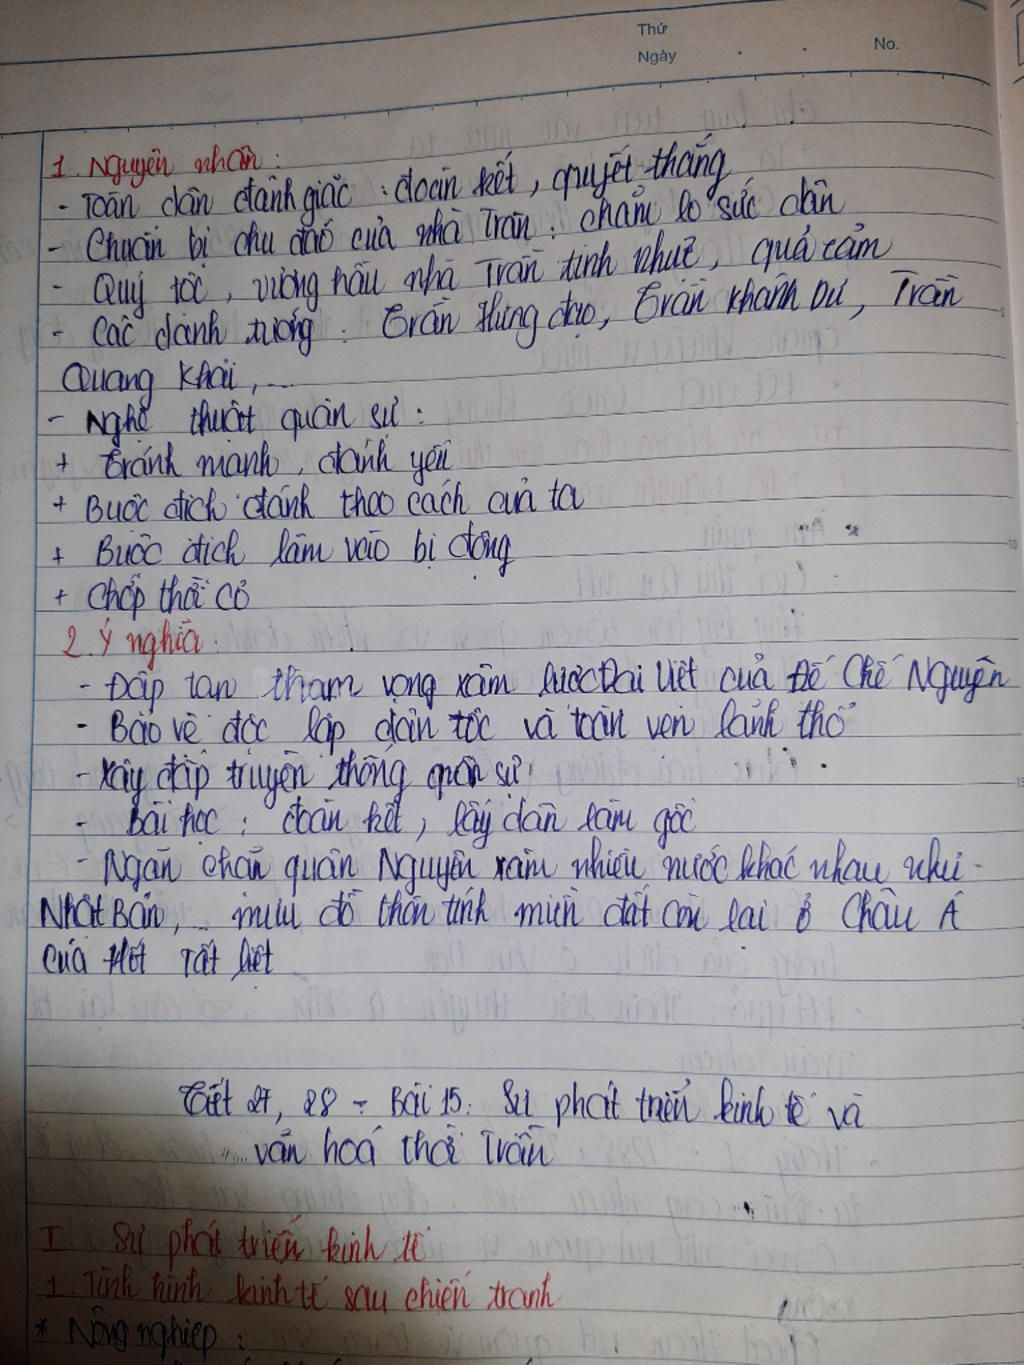 Thứ
Ngày . . No.
1. Nguyên nhân:
- Toàn dân đánh giặc: đoàn kết, quyết thắng
- Chuẩn bị chu đáo của nhà Trần: chăm lo sức dân
- Quý tộc, vương hầu nhà Trần tinh nhuệ, quả cảm
- Các danh tướng: Trần Hưng đạo, Trần Khánh Dư, Trần
Quang Khải,...
- Nghệ thuật quân sự:
+ Tránh mạnh, đánh yếu
+ Buộc địch đánh theo cách của ta
+ Buộc địch lâm vào bị động
+ Chớp thời cơ
2. Ý nghĩa:
- Đập tan tham vọng xâm lược Đại Việt của Đế Chế Nguyên
- Bảo vệ độc lập dân tộc và toàn vẹn lãnh thổ
- Xây đắp truyền thống quân sự
- Bài học: đoàn kết, lấy dân làm gốc
- Ngăn chặn quân Nguyên xâm nhiều nước khác nhau như
Nhật Bản,.. mưu đồ thôn tính miền đất còn lại ở Châu Á
của Hốt Tất Liệt
Tiết 27, 28 - Bài 15: Sự phát triển kinh tế và
văn hoá thời Trần
I Sự phát triển kinh tế
1. Tình hình kinh tế sau chiến tranh
* Nông nghiệp: